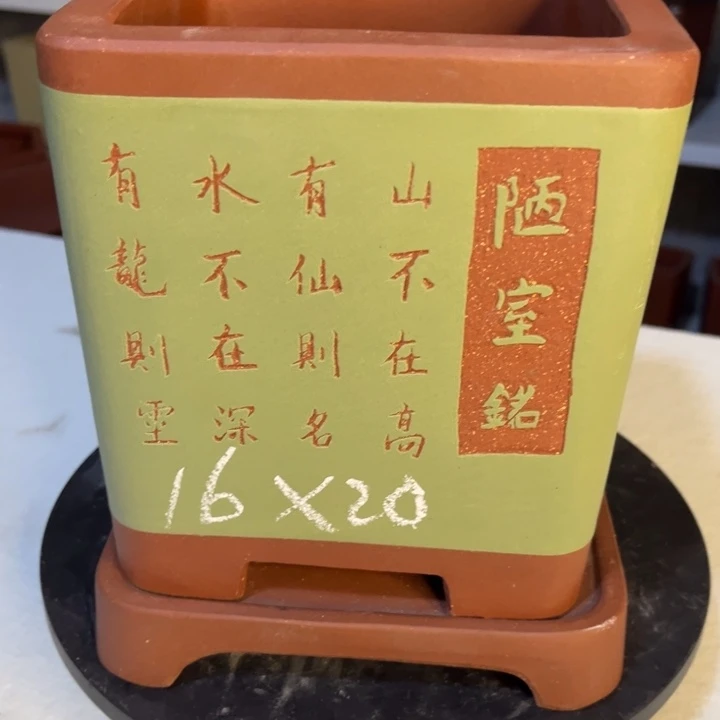 陋室銘
山不在高
有仙則名
水不在深
有龍則靈
16×20